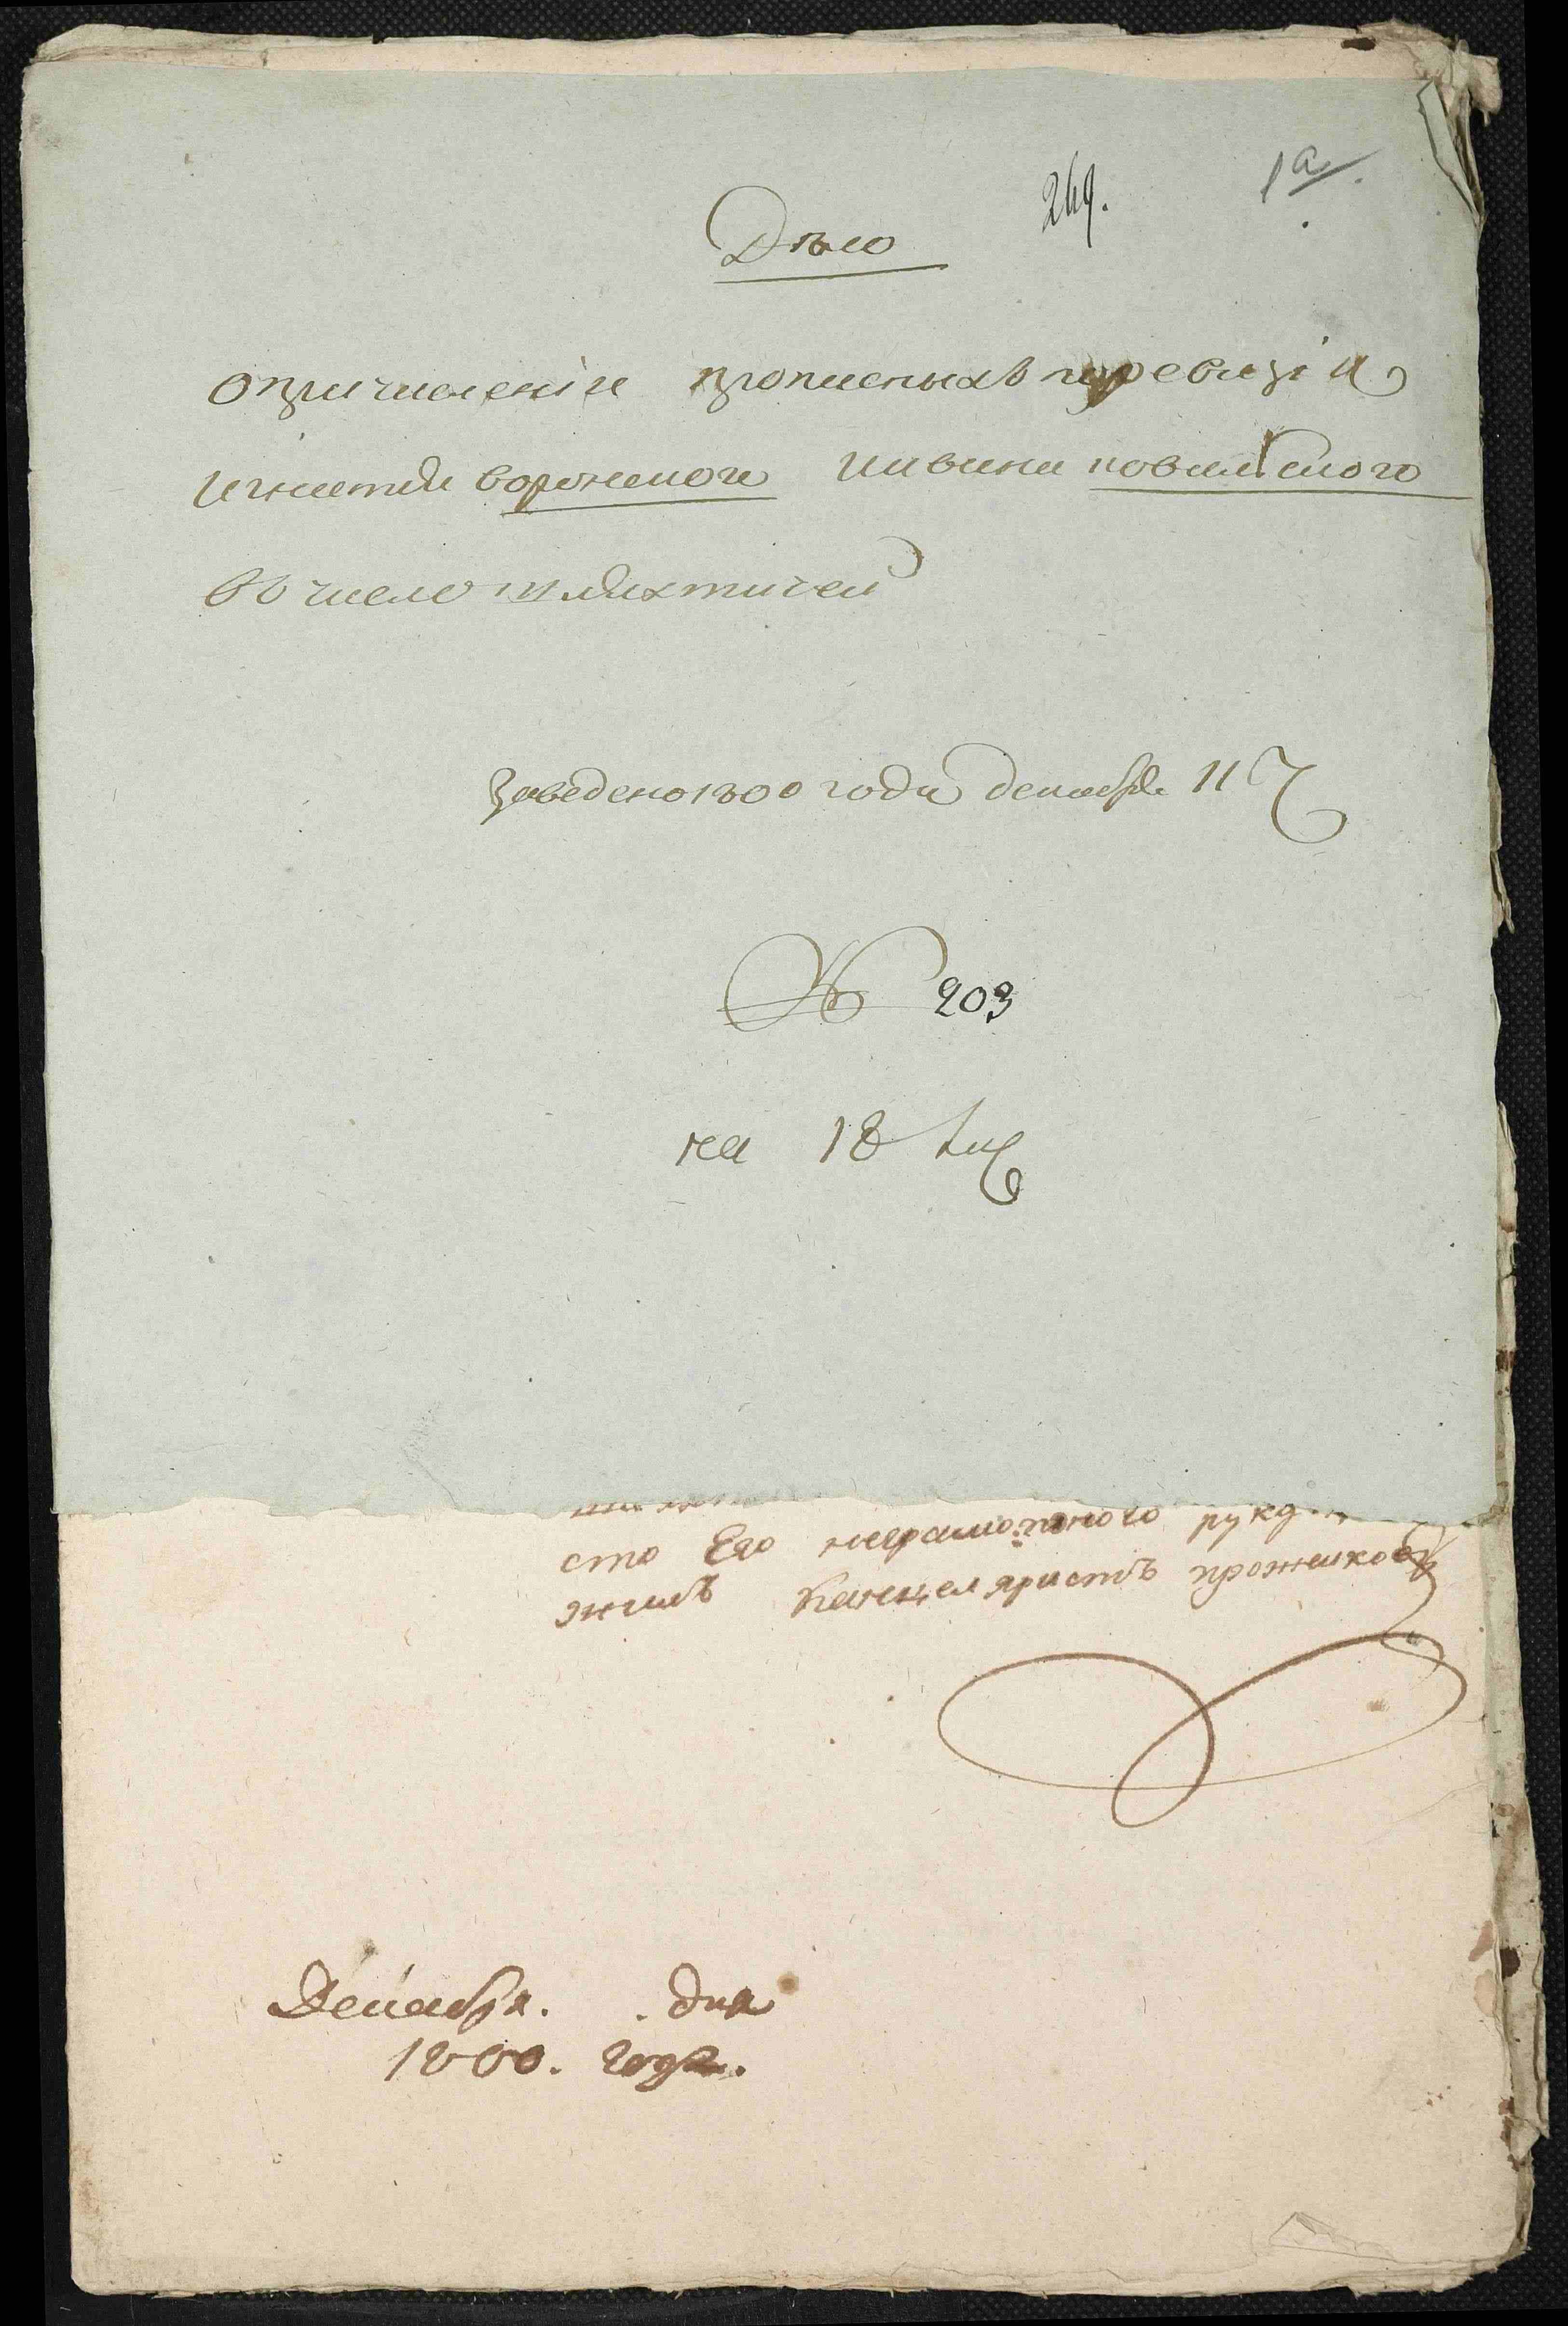 269.
1а.
Дѣло
о причисленіи прописныхъ по ревизіи
игнатія вороненого и ивана ковальского
въ число шляхтичей
Заведено 1800 года декабря 11
№ 203
на 18 ли
сто Его неграмотного рук
жилъ Канцеляристъ
Декабря. . дня
1800. года.